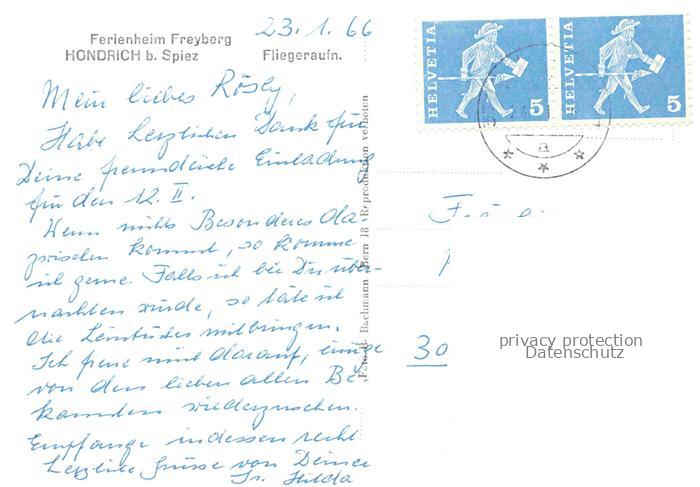 23.1.66
Ferienheim Freyberg
HONDRICH b. Spiez Fliegeraufn.
Mein liebes Rösly,
Habe herzlichen Dank für
Deine freundliche Einladung
für den 12. II.
Wenn nichts Besonderes da-
zwischen kommt, so komme
ich gerne. Falls ich bei Dir über-
nachten würde, so täte ich
die Leintücher mitbringen.
Ich freue mich darauf, einige
von den lieben alten Be-
kannten wiederzusehen.
Empfange indessen recht
herzliche Grüsse von Deiner
Sr. Hilda
Foto H. Bachmann Bern 18 Reproduktion verboten
HELVETIA 5
HELVETIA 5
a
30
privacy protection
Datenschutz